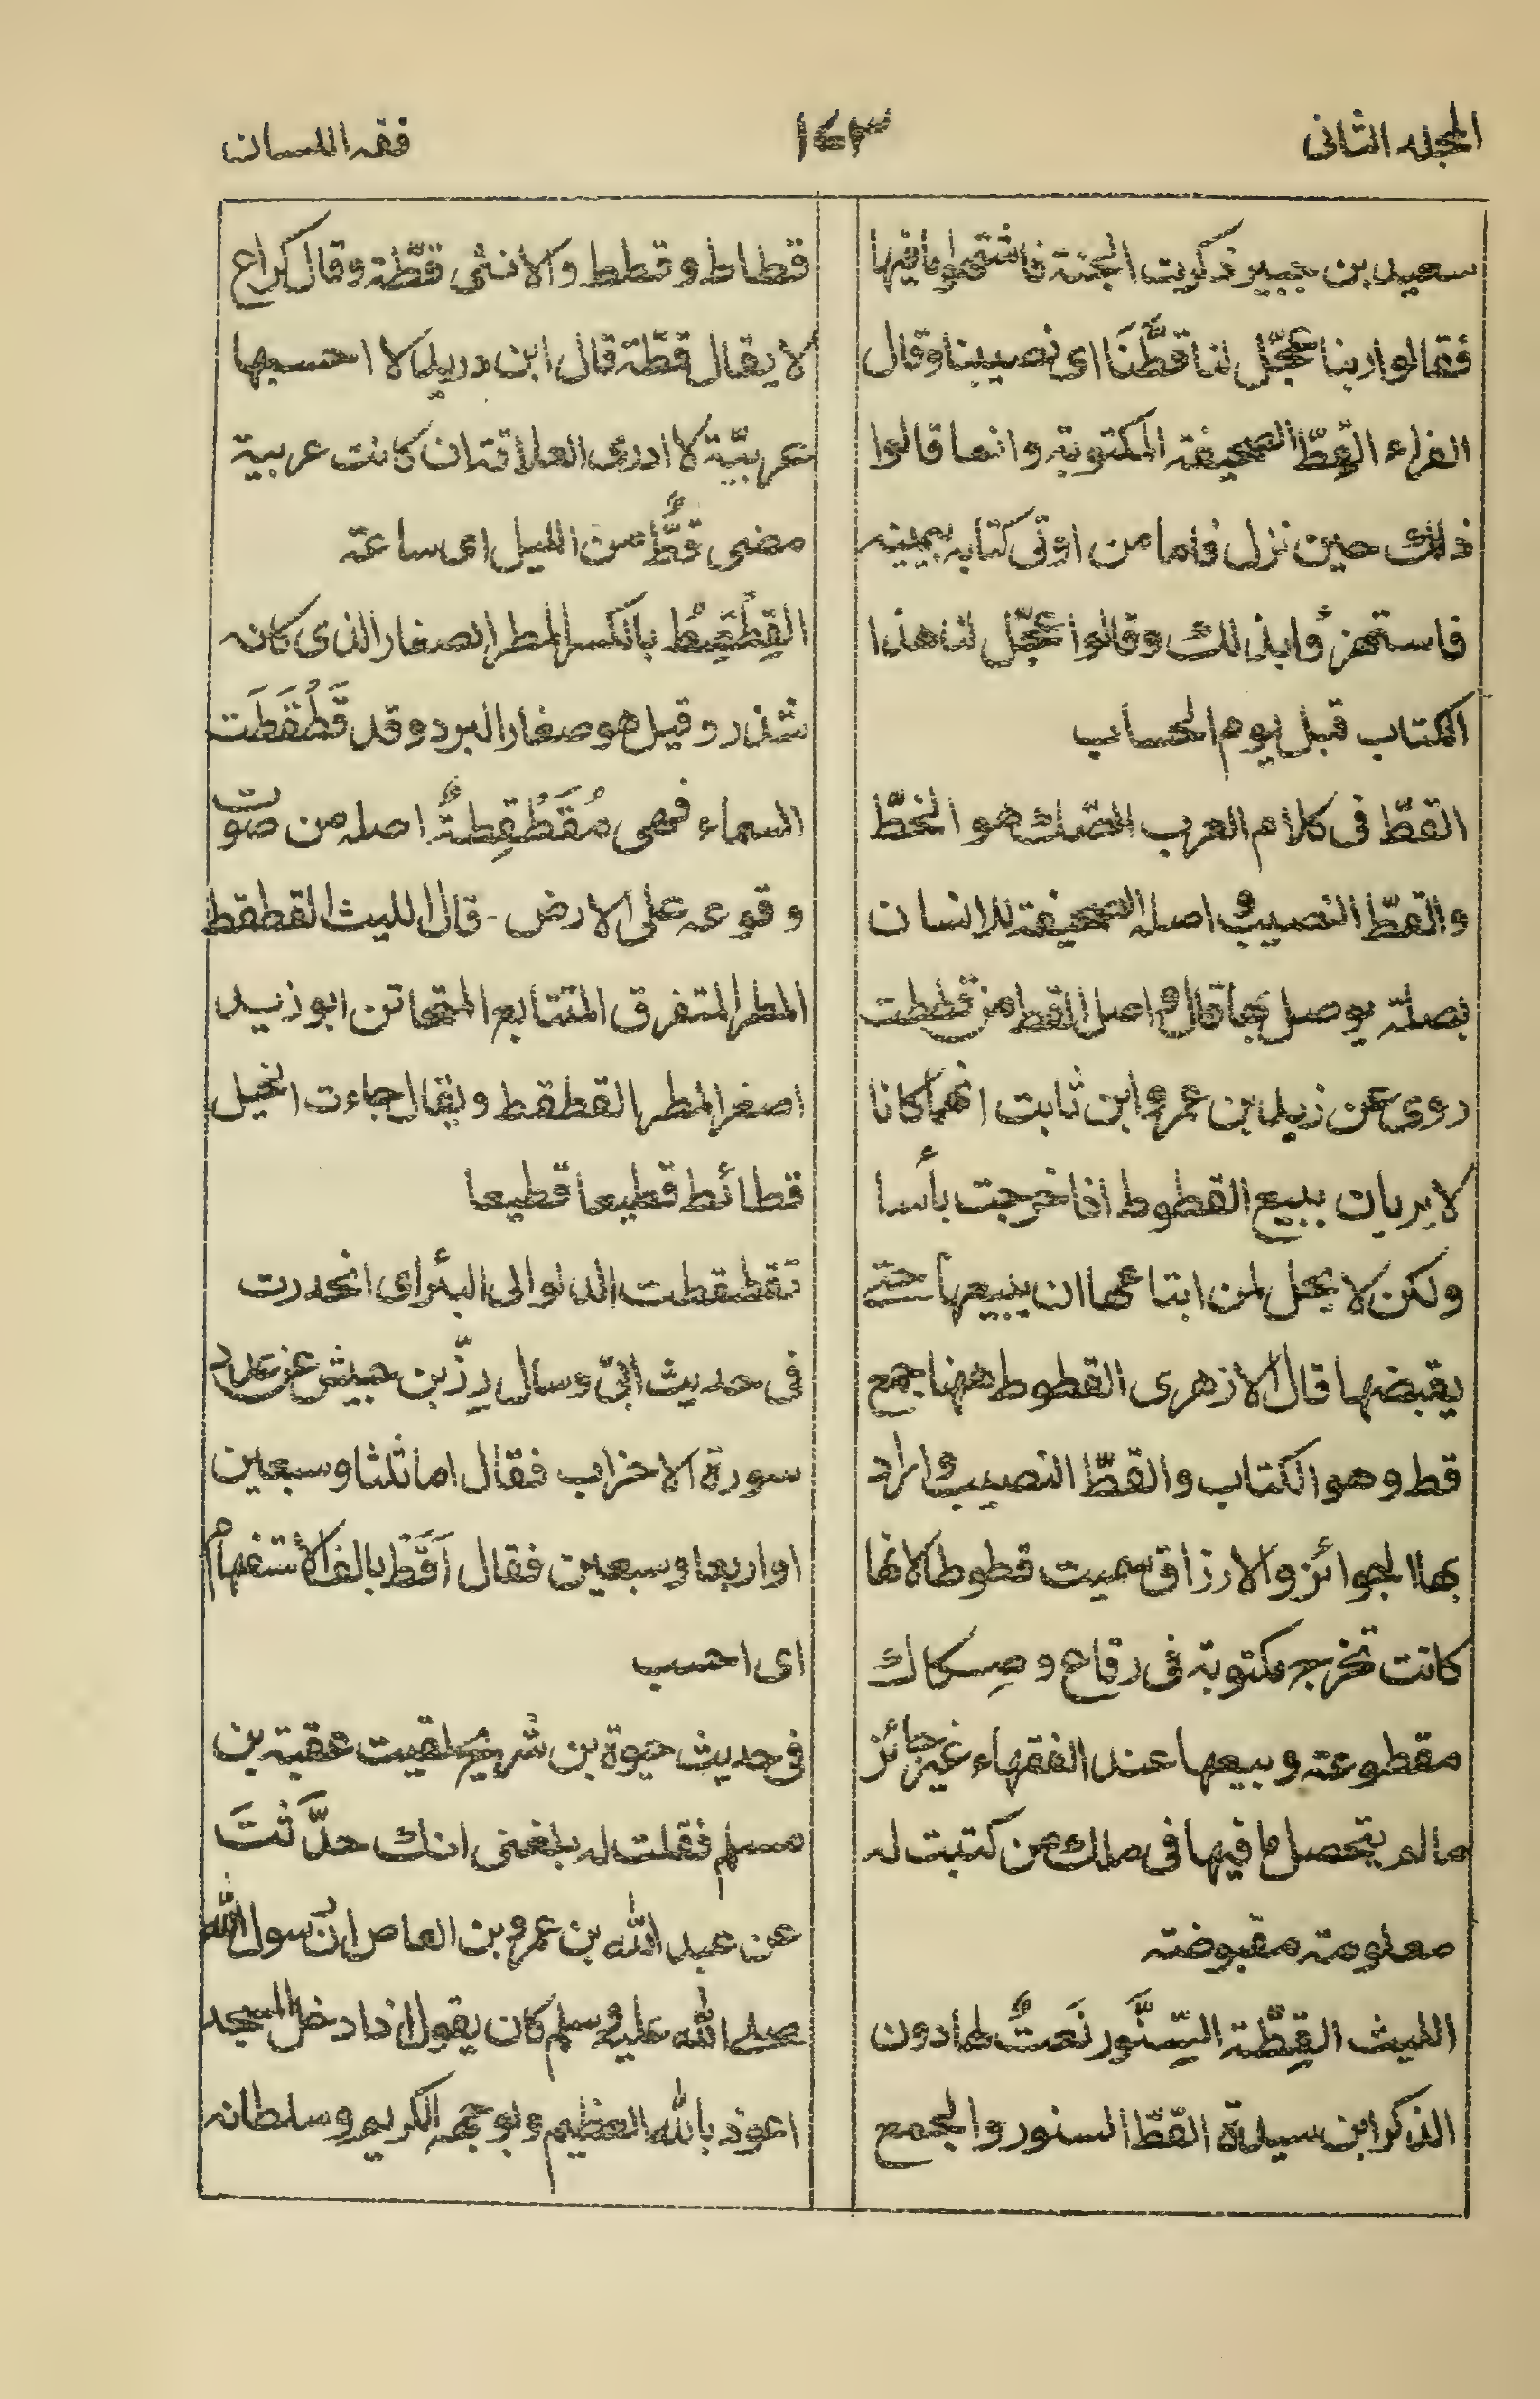 المجلد الثانى
١٤٣
فقه اللسان
سعيد بن جبير ذكرت الجنة فاشتهوا ما فيها
فقالوا ربنا عجّل لنا قطَّنَا اى نصيبنا وقال
الفراء القطّ الصحيفة المكتوبة وانما قالوا
ذلك حين نزل فاما من اوتى كتابه بيمينه
فاستهزؤا بذلك وقالوا عجّل لنا هذا
الكتاب قبل يوم الحساب
القطّ فى كلام العرب الصّك هو الخطّ
والقطّ النصيب و اصله الصحيفة للانسان
بصلة يوصل بها قال و اصل القط من قططت
روى عن زيد بن عمر و ابن ثابت انهما كانا
لا يريان ببيع القطوط اذا خرجت بأسا
ولكن لا يحل لمن ابتاعها ان يبيعها حتى
يقبضها قال الازهرى القطوط ههنا جمع
قط وهو الكتاب والقطّ النصيب و اراد
بها الجوائز والارزاق سميت قطوطا لانها
كانت تخرج مكتوبة فى رقاع و صِكاك
مقطوعة و بيعها عند الفقهاء غير جائز
ما لم يتحصل ما فيها فى ملك من كتبت له
معلومة مقبوضة
الليث القِطّة السِّنَّور نَعتٌ لها دون
الذكر ابن سيدة القطّ السنور والجمع
قطاط و قطط و الانثى قطّة وقال كراع
لا يقال قطّة قال ابن دريد لا احسبها
عربيّة لا ادرى العلاقة ان كانت عربية
مضى قطٌّ من الليل اى ساعة
القِطْقِط بالكسر المطر الصغار الذى كانه
شذر وقيل هو صغار البرد و قد قَطْقَطَت
السماء فهى مُقَطْقِطةٌ اصله من صوت
و قوعه على الارض - قال الليث القطقط
المطر المتفرق المتتابع المتهاتن ابو زيد
اصغر المطر القطقط ويقال جاءت الخيل
قطائط قطيعا قطيعا
تقطقطت الدلو الى البئر اى انحدرت
فى حديث ابىّ وسال زِرّ بن حبيش عن عدد
سورة الاحزاب فقال اما ثلثا وسبعين
او اربعا و سبعين فقال اَقَطْ بالف الاستفهام
اى احسب
فى حديث حيوة بن شريح لقيت عقبة بن
مسلم فقلت له بلغنى انك حدَّثْتَ
عن عبد الله بن عمرو بن العاص ان رسول الله
صلى الله عليه و سلم كان يقول اذا دخل المسجد
اعوذ بالله العظيم و بوجهه الكريم و سلطانه